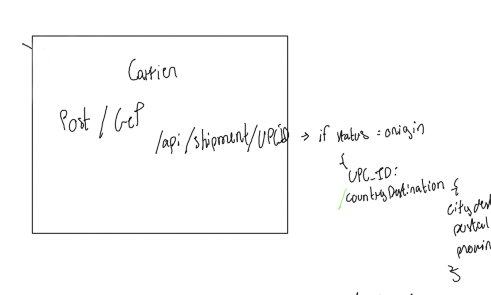 Carrier
Post / GeP
/api/shipment/UPCID → if status = origin
{
UPC_ID:
countryDestination {
city dest
postal
provin
}